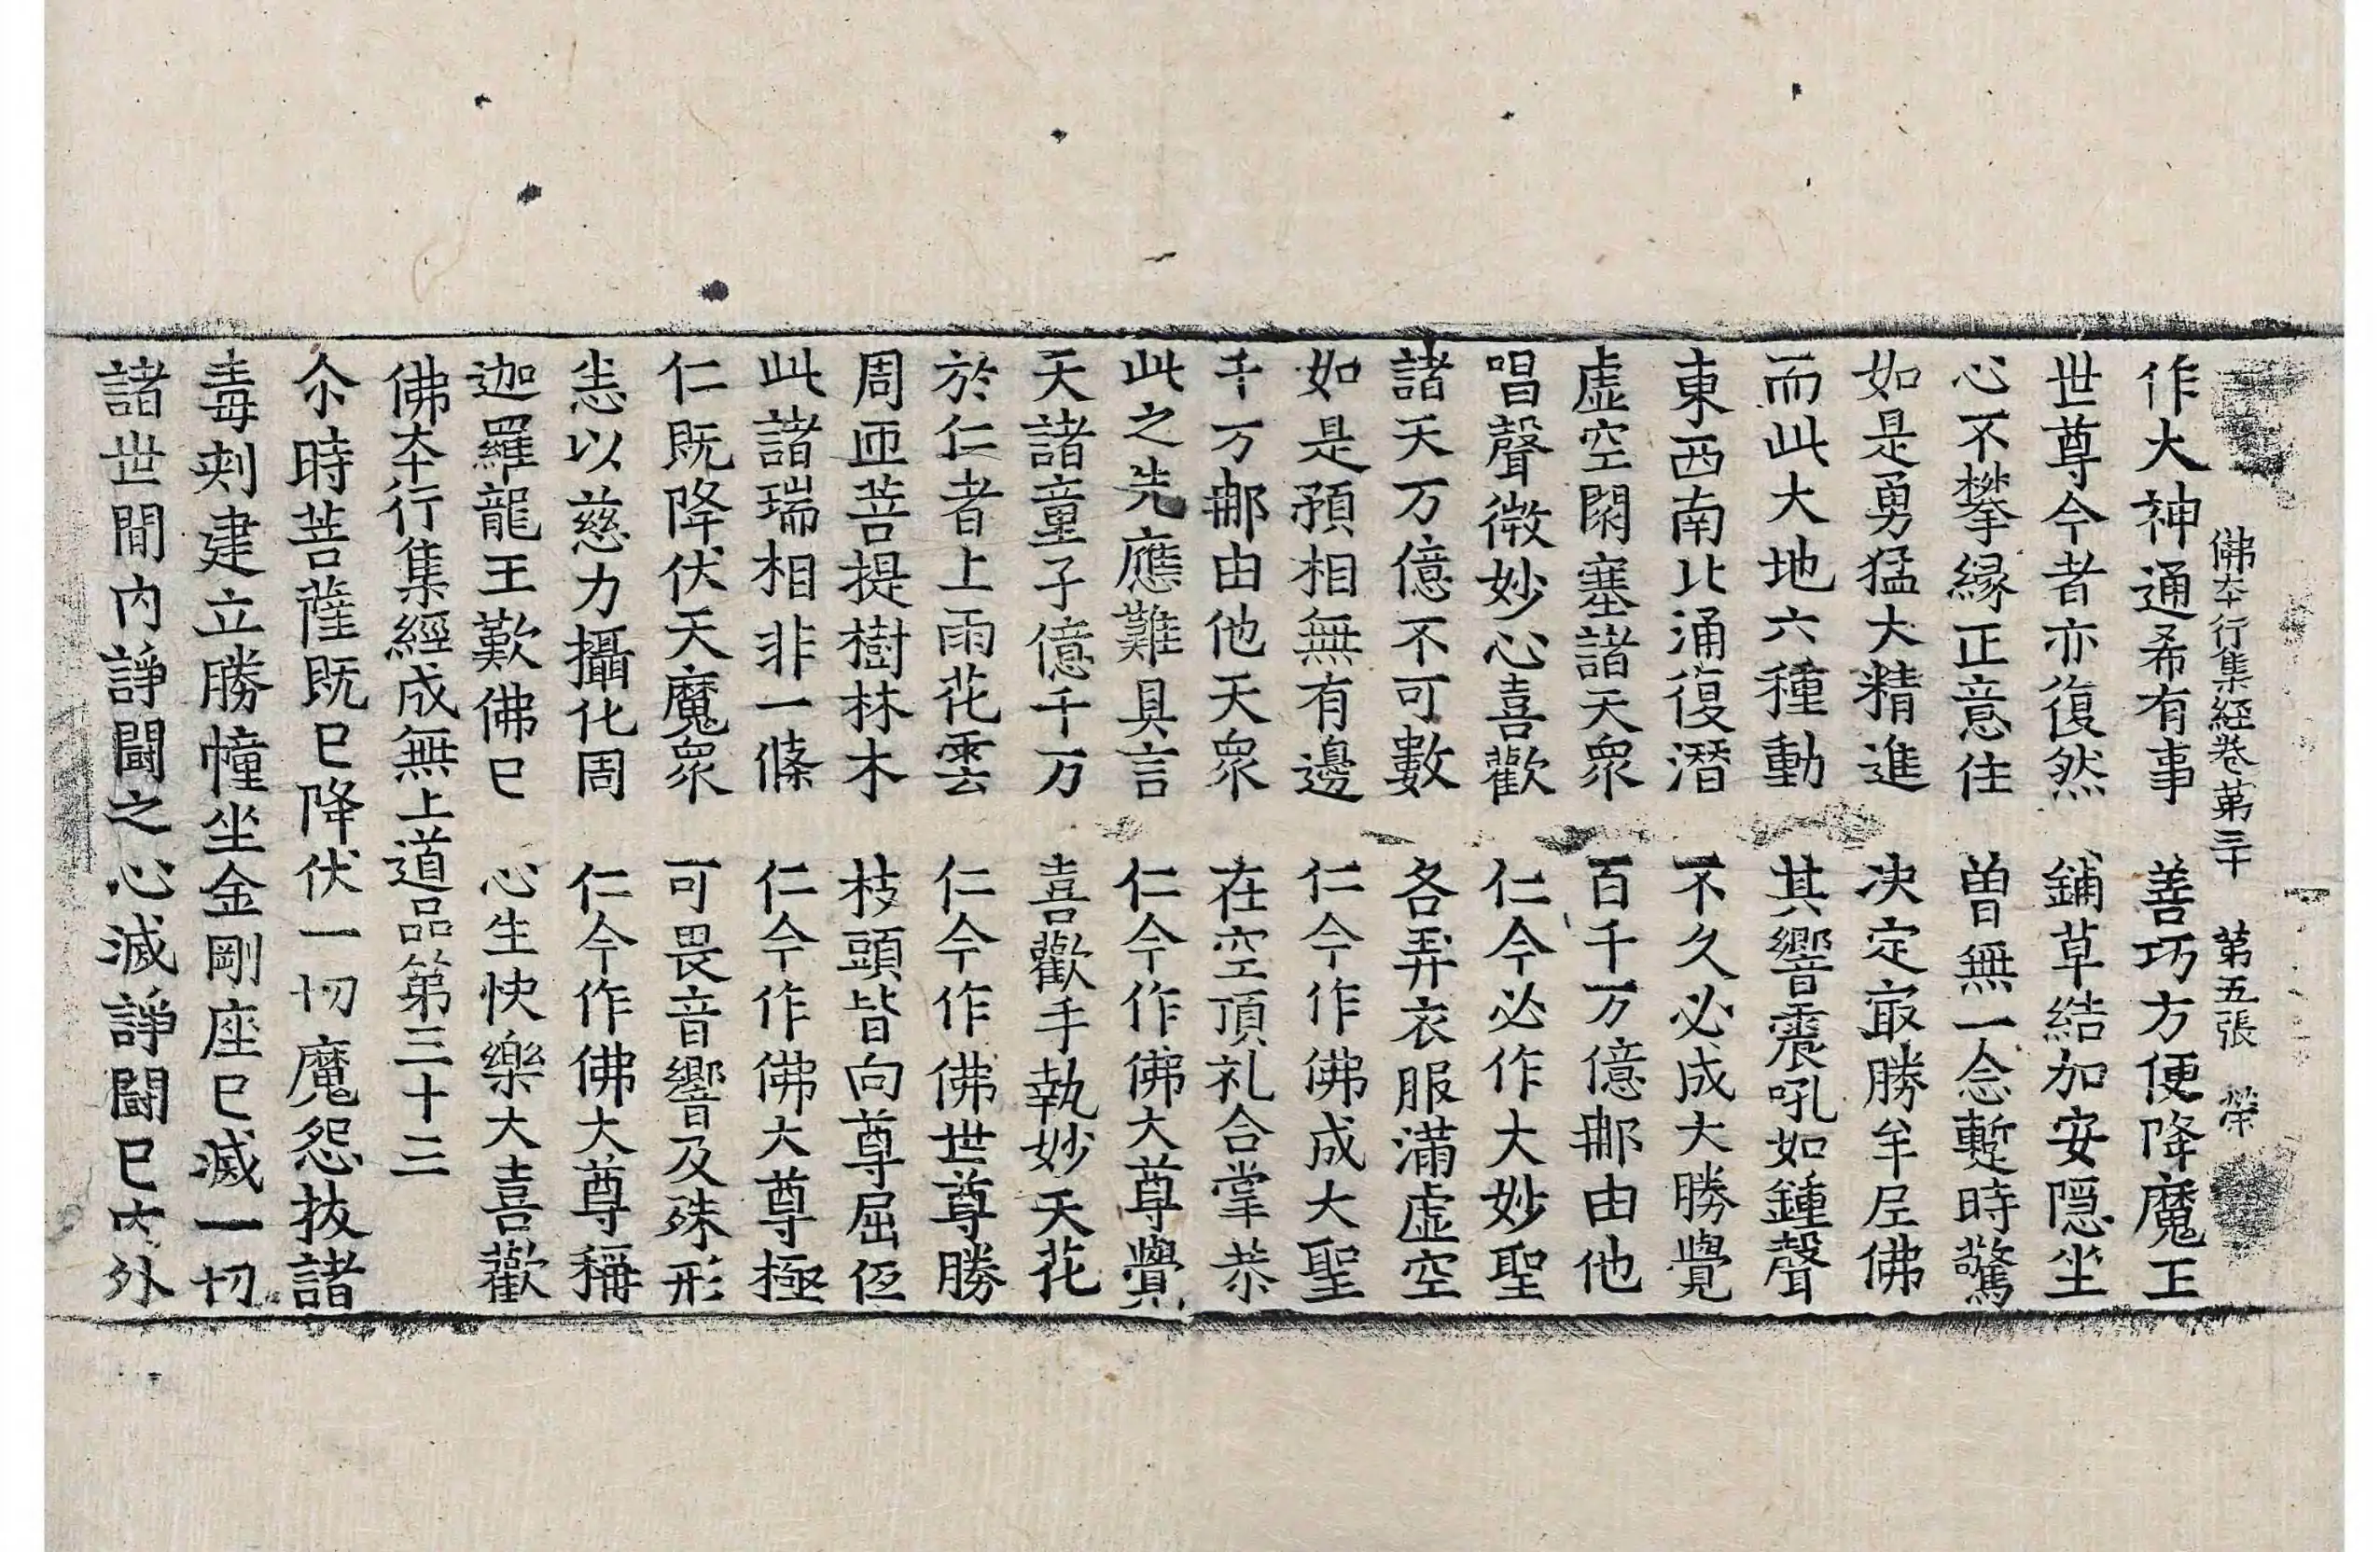 佛夲行集經卷第三十　第五張　榮
作大神通希有事　善巧方便降魔王
世尊今者亦復然　鋪草結加安隱坐
心不攀緣正意住　曾無一念蹔時驚
如是勇猛大精進　决定㝡勝牟尼佛
而此大地六種動　其響震吼如鍾聲
東西南北涌復潛　不久必成大勝覺
虛空閇塞諸天衆　百千万億那由他
唱聲微妙心喜歡　仁今必作大妙聖
諸天万億不可數　各弄衣服滿虛空
如是預相無有邊　仁今作佛成大聖
千万那由他天衆　在空頂礼合掌恭
此之先應難具言　仁今作佛大尊覺
天諸童子億千万　喜歡手執妙天花
於仁者上雨花雲　仁今作佛世尊勝
周迊菩提樹林木　枝頭皆向尊屈低
此諸瑞相非一條　仁今作佛大尊極
仁既降伏天魔衆　可畏音響及殊形
恙以慈力攝化周　仁今作佛大尊稱
迦羅龍王歎佛已　心生快樂大喜歡
佛夲行集經成無上道品第三十三
尒時菩薩既已降伏一切魔怨拔諸
毒刾建立勝幢坐金剛座已滅一切
諸世間內諍鬪之心滅諍鬪已內外